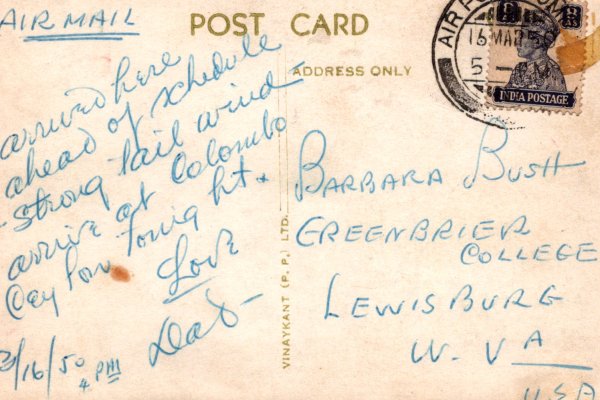 AIR MAIL
POST CARD
ADDRESS ONLY
arrived here
ahead of schedule
- strong tail wind -
arrive at Colombo
Ceylon tonight.
Love
Dad -
3/16/50
4 PM
VINAYKANT (P. P.) LTD.
AIR
16 MAR 50
5
INDIA POSTAGE
BARBARA BUSH
GREENBRIER
COLLEGE
LEWISBURG
W. VA
USA